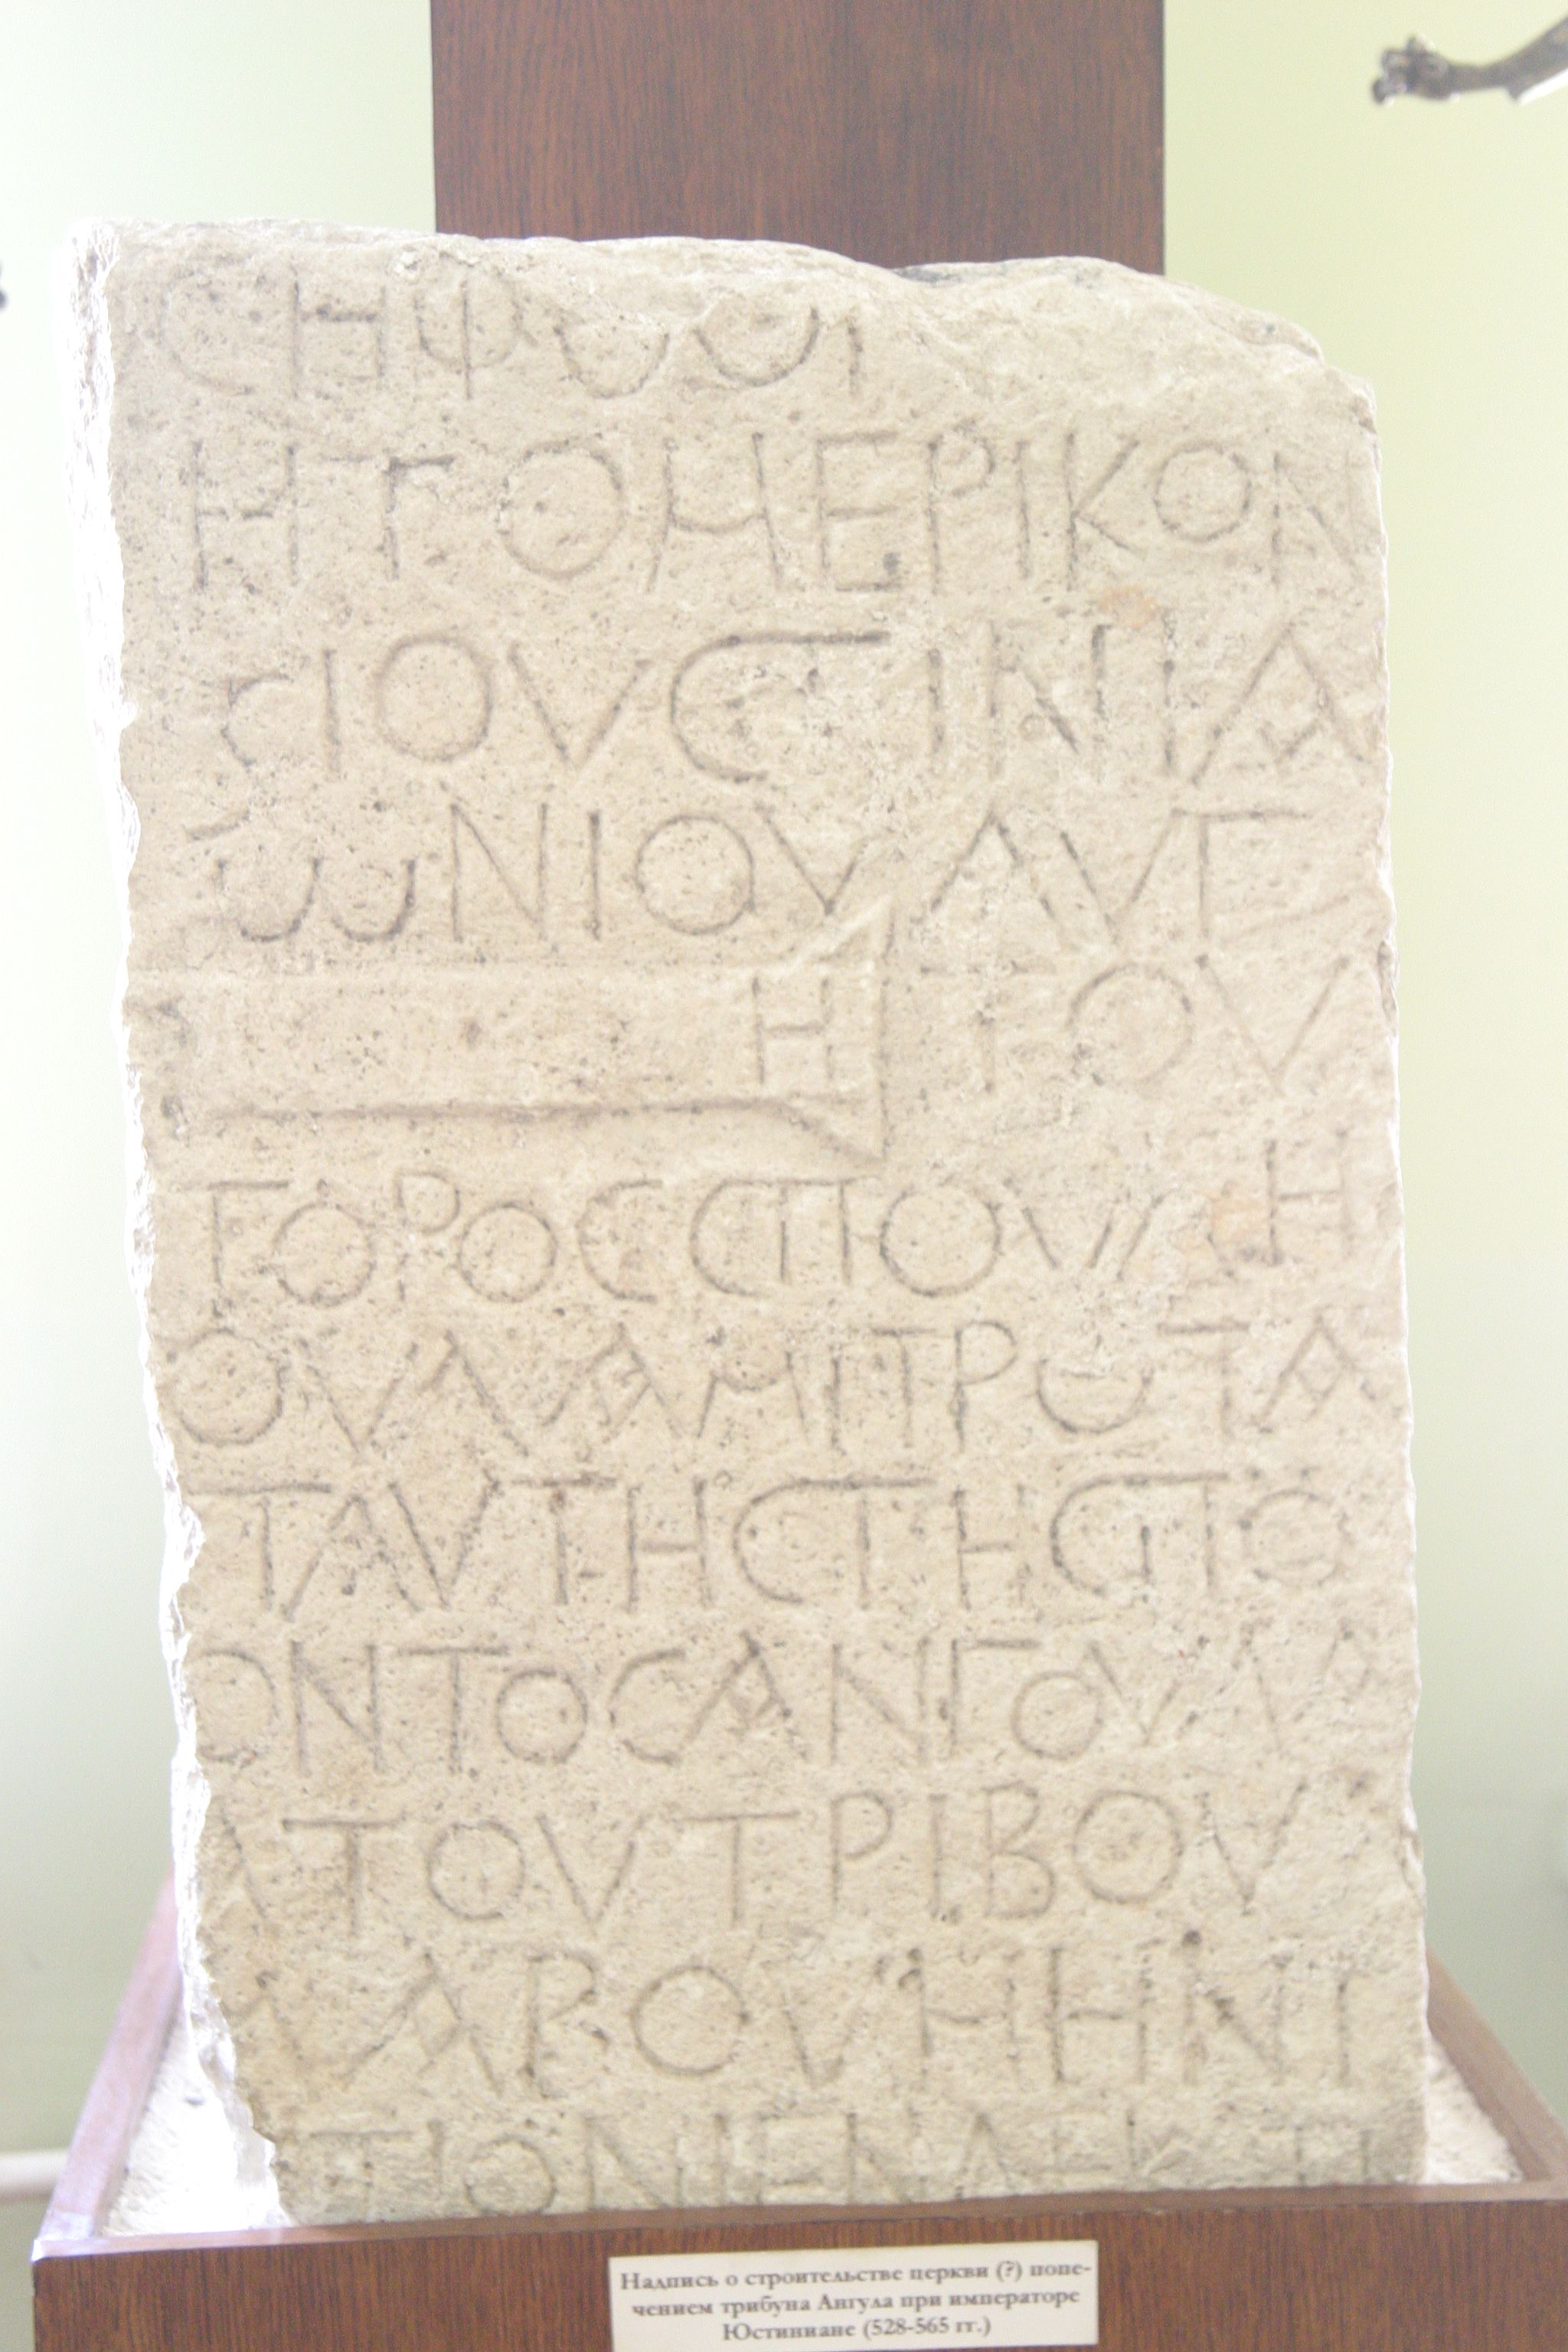 ΗΤΟΗΕΡΙΚΟΝ
CΙΟVCΤΙΝΙΑ
ωΝΙΟV ΑVΓ
Η ΤΟV
ΤΟΡΟC CΠΟV Η
ΟVΛΑΜΠΡΟΤΑ
ΤΑVΤΗCΤΗCΠΟ
ΟΝΤΟCΑΝΓΟVΛΑ
ΤΟVΤΡΙΒΟV
ΛΑΒΟVΗΗΝΙ
ΤΙΟΝΙΕΝΔΕΚ
Надпись о строительстве церкви (?) попе-
чением трибуна Ангула при императоре
Юстиниане (528-565 гг.)